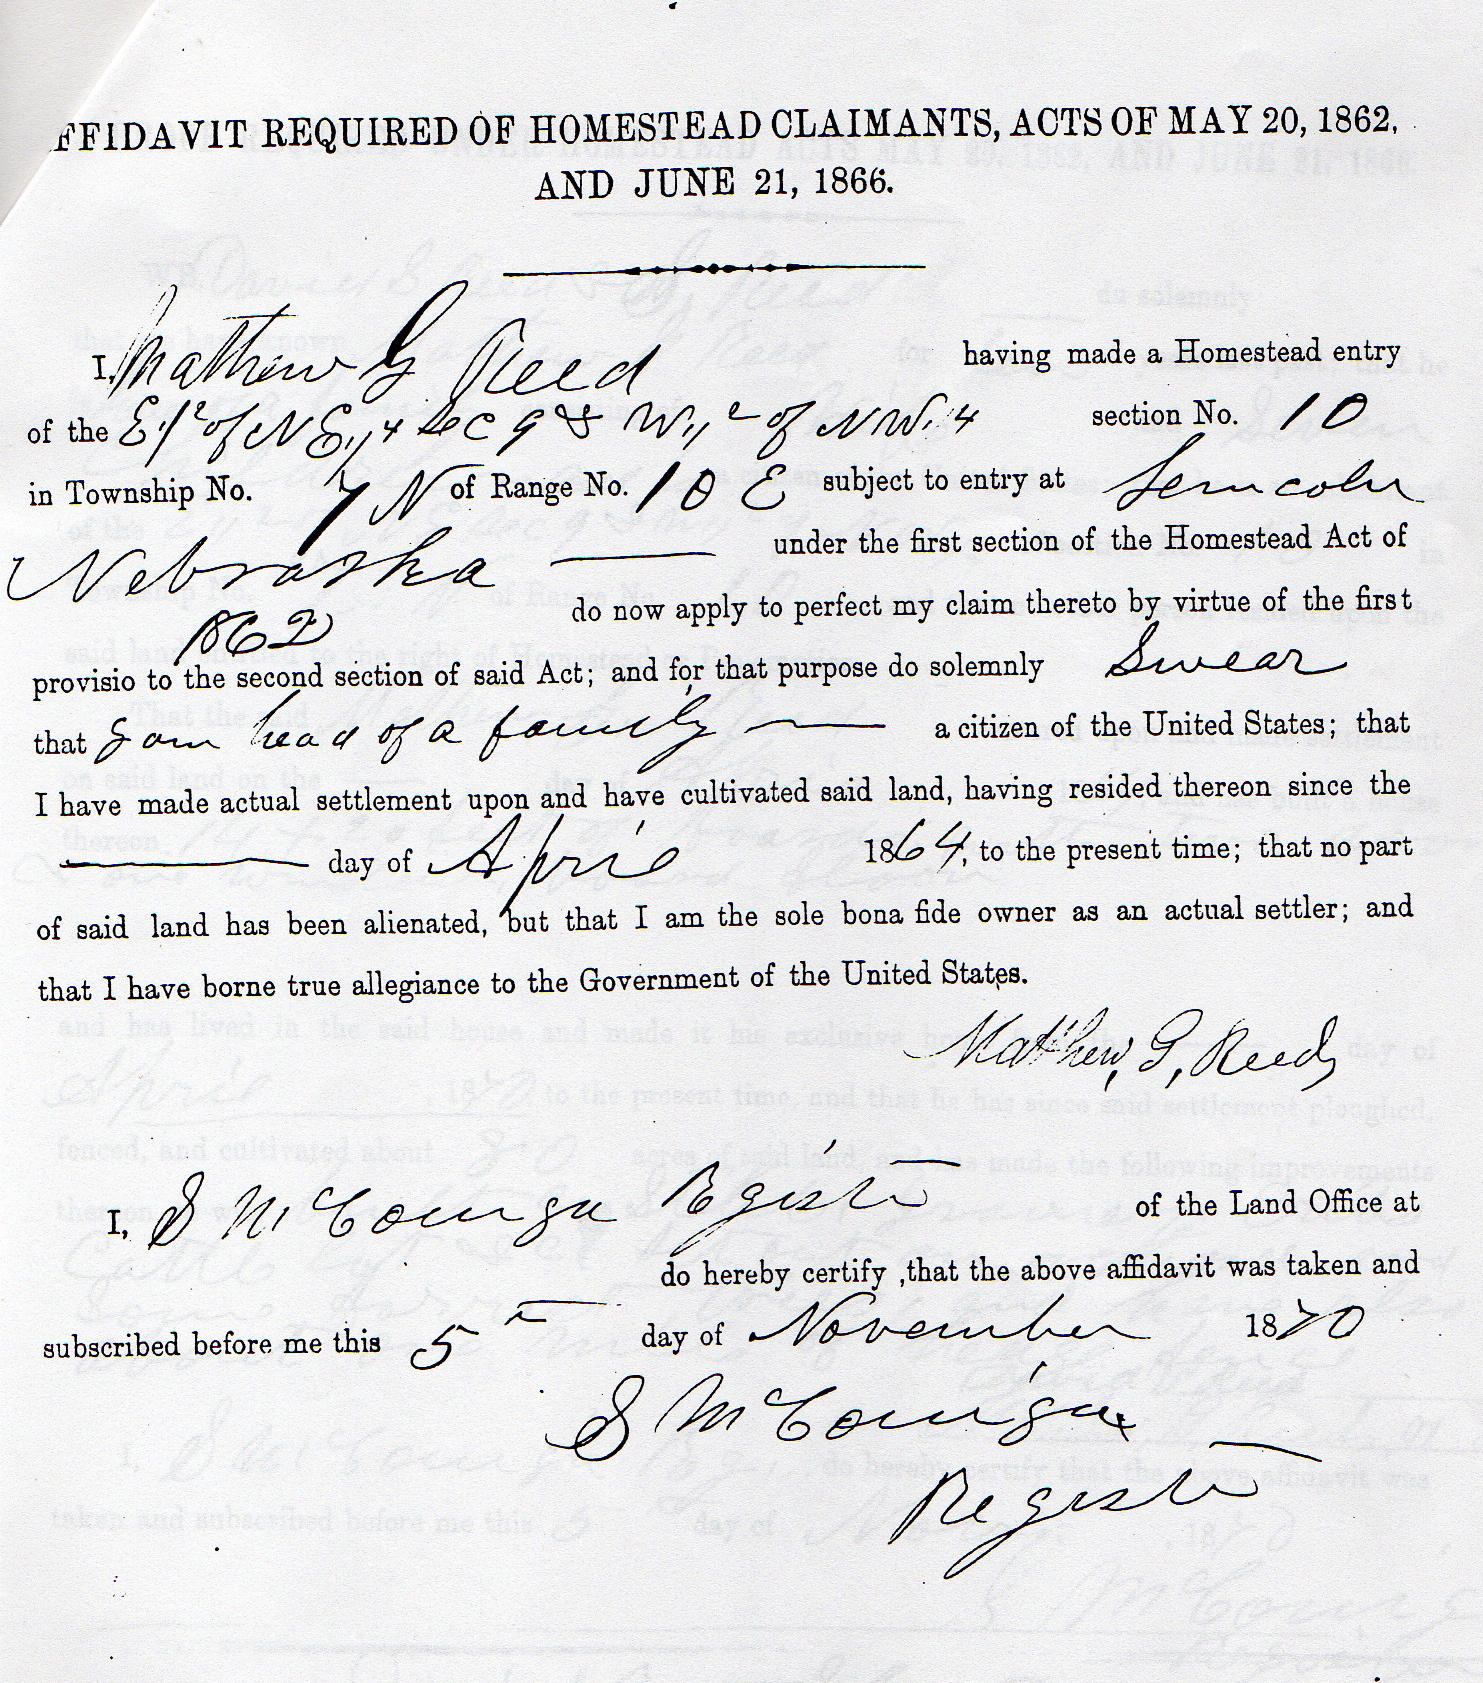 FFIDAVIT REQUIRED OF HOMESTEAD CLAIMANTS, ACTS OF MAY 20, 1862,
AND JUNE 21, 1866.
I, Mathew G Reed having made a Homestead entry
of the E 1/2 of NE 1/4 Sec 9 & W 1/2 of NW 1/4 section No. 10
in Township No. 7 N of Range No. 10 E subject to entry at
Nebraska — under the first section of the Homestead Act of
1862 do now apply to perfect my claim thereto by virtue of the first
provisio to the second section of said Act; and for that purpose do solemnly Swear
that I am head of a family — a citizen of the United States; that
I have made actual settlement upon and have cultivated said land, having resided thereon since the
— day of April 1864, to the present time; that no part
of said land has been alienated, but that I am the sole bona fide owner as an actual settler; and
that I have borne true allegiance to the Government of the United States.
Mathew, G, Reed
I, S Register of the Land Office at
do hereby certify ,that the above affidavit was taken and
subscribed before me this 5 day of November 1870
S
Register